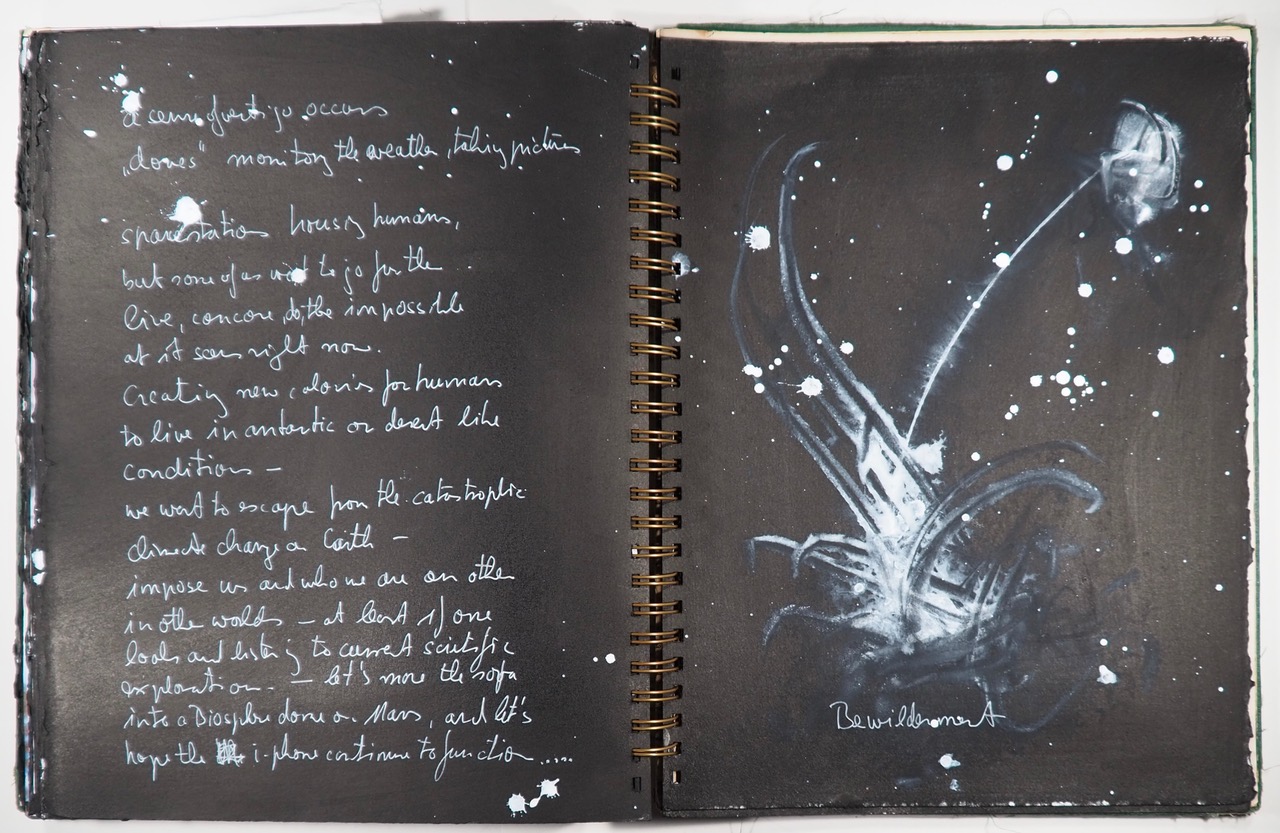 a sense of vertigo occurs
„domes" monitoring the weather, taking pictures
spacestation housing humans,
but some of us want to go for the
live, concore, do, the impossible
at it seems right now.
Creating new colonies for humans
to live in antartic or desert like
conditions —
we want to escape from the catastrophic
climate change on Earth —
impose us and who we are on other
in othe worlds — at least if one
looks and listening to current scientific
exploration. — let's move the sofa
into a Biosphere dome on Mars, and let's
hope the i-phone continue to function .....
Bewilderment